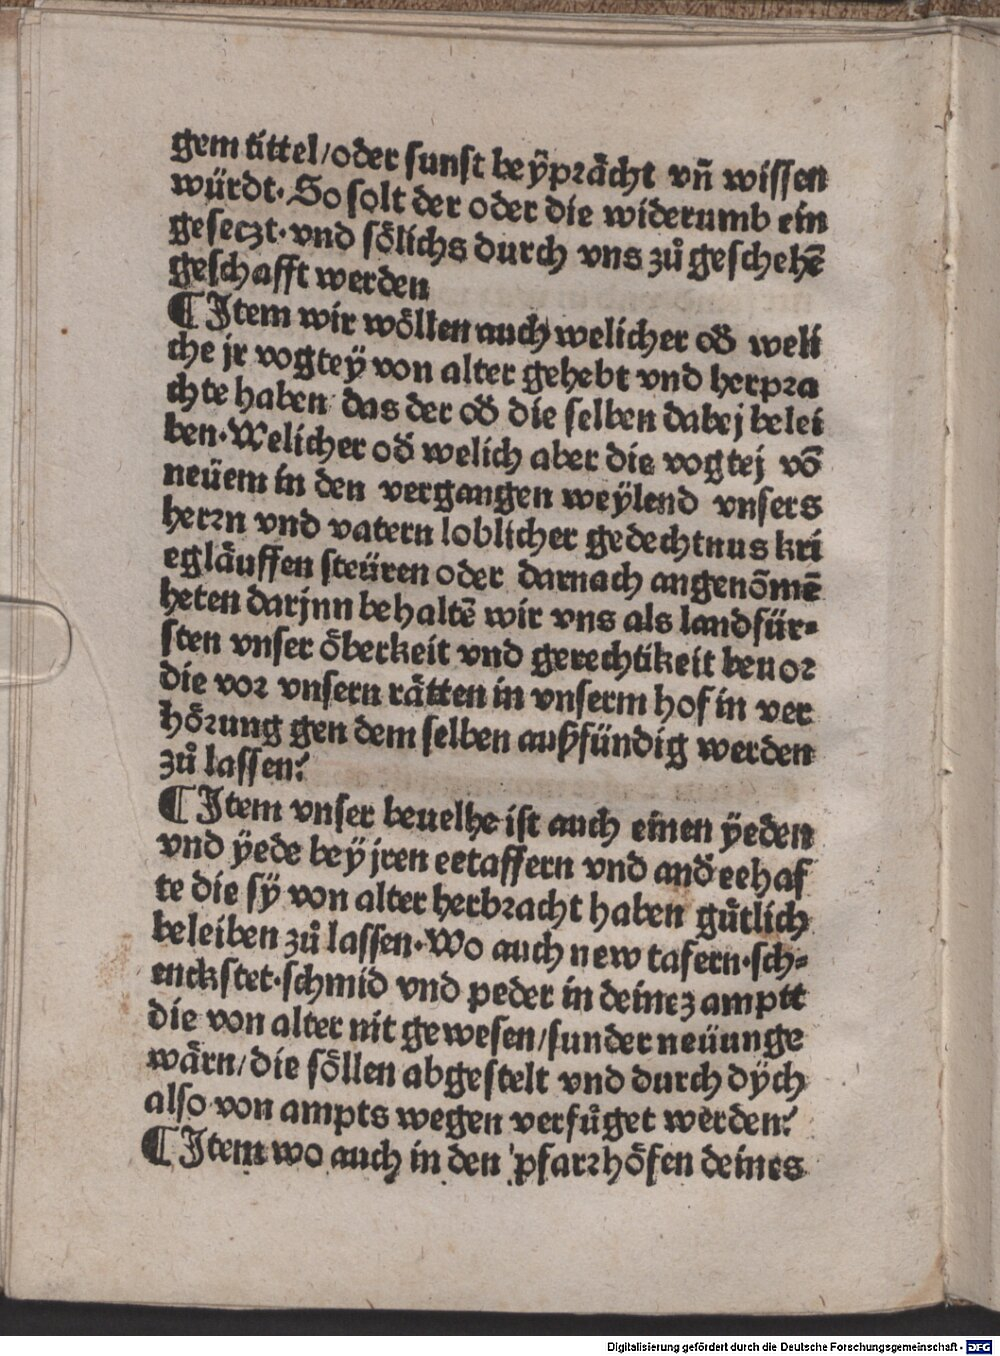 gem tittel/oder sunst beÿprächt vn̄ wissen
würdt. So solt der oder die widerumb ein
geseczt. vnd sölichs durch vns zů geschehē
geschafft werden
¶ Item wir wöllen auch welicher od̄ weli
che jr vogteÿ von alter gehebt vnd herpra
chte haben das der od̄ die selben dabej belei
ben. Welicher od̄ welich aber die vogtej vō
neüem in den vergangen weÿlend vnsers
herrn vnd vatern loblicher gedechtnus kri
egläuffen steüren oder darnach angenōmē
heten darjnn behaltē wir vns als landfür⸗
sten vnser öberkeit vnd gerechtikeit beuor
die vor vnsern rätten in vnserm hof in ver
hörung gen dem selben außfündig werden
zů lassen.
¶ Item vnser beuelhe ist auch einen ÿeden
vnd ÿede beÿ jren eetaffern vnd and̄ eehaf
te die sÿ von alter herbracht haben gůtlich
beleiben zů lassen. Wo auch new tafern. sch⸗
enckstet. schmid vnd peder in deinez amptt
die von alter nit gewesen/sunder neüunge
wärn/die söllen abgestelt vnd durch dÿch
also von ampts wegen verfůget werden.
¶ Item wo auch in den pfarrhöfen deines
Digitalisierung gefördert durch die Deutsche Forschungsgemeinschaft - DFG